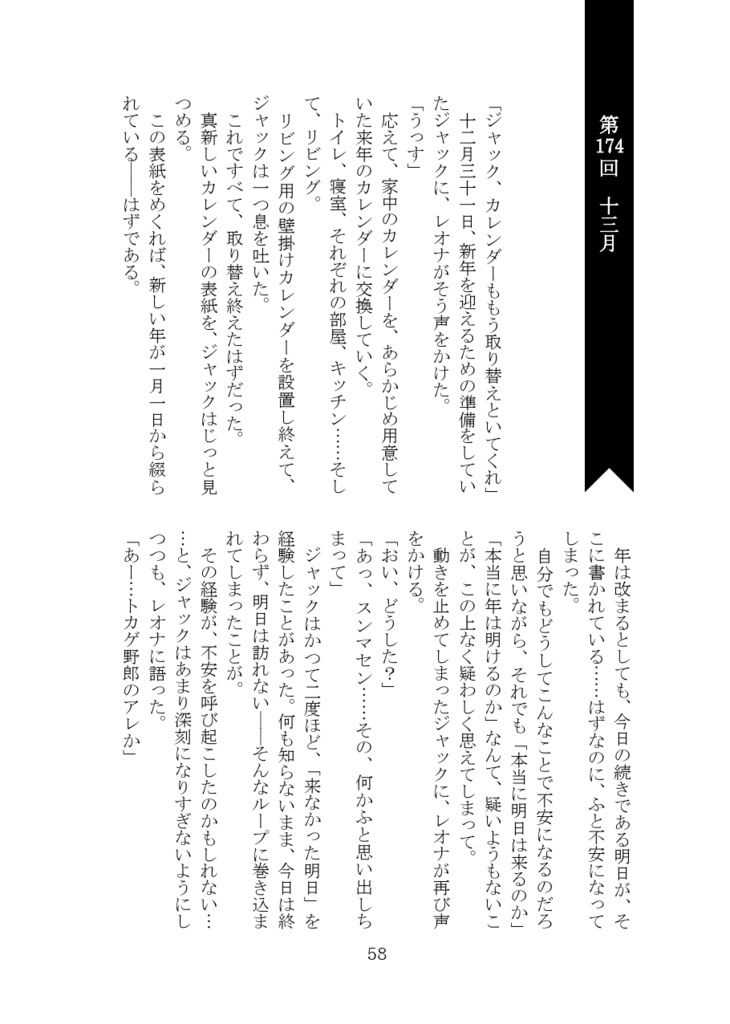 第174回　十三月
「ジャック、カレンダーももう取り替えといてくれ」
　十二月三十一日、新年を迎えるための準備をしてい
たジャックに、レオナがそう声をかけた。
「うっす」
　応えて、家中のカレンダーを、あらかじめ用意して
いた来年のカレンダーに交換していく。
　トイレ、寝室、それぞれの部屋、キッチン……そし
て、リビング。
　リビング用の壁掛けカレンダーを設置し終えて、
ジャックは一つ息を吐いた。
　これですべて、取り替え終えたはずだった。
　真新しいカレンダーの表紙を、ジャックはじっと見
つめる。
　この表紙をめくれば、新しい年が一月一日から綴ら
れている――はずである。
　年は改まるとしても、今日の続きである明日が、そ
こに書かれている……はずなのに、ふと不安になって
しまった。
　自分でもどうしてこんなことで不安になるのだろ
うと思いながら、それでも「本当に明日は来るのか」
「本当に年は明けるのか」なんて、疑いようもないこ
とが、この上なく疑わしく思えてしまって。
　動きを止めてしまったジャックに、レオナが再び声
をかける。
「おい、どうした？」
「あっ、スンマセン……その、何かふと思い出しち
まって」
　ジャックはかつて二度ほど、「来なかった明日」を
経験したことがあった。何も知らないまま、今日は終
わらず、明日は訪れない――そんなループに巻き込ま
れてしまったことが。
　その経験が、不安を呼び起こしたのかもしれない…
…と、ジャックはあまり深刻になりすぎないようにし
つつも、レオナに語った。
「あー…トカゲ野郎のアレか」
58